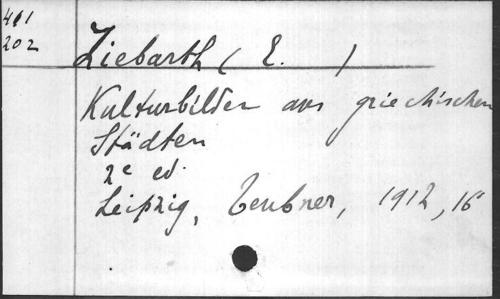 411
202
Ziebarth ( E. )
Kulturbilder aus griechischen
Städten
2e ed.
Leipzig, Teubner, 1912, 16